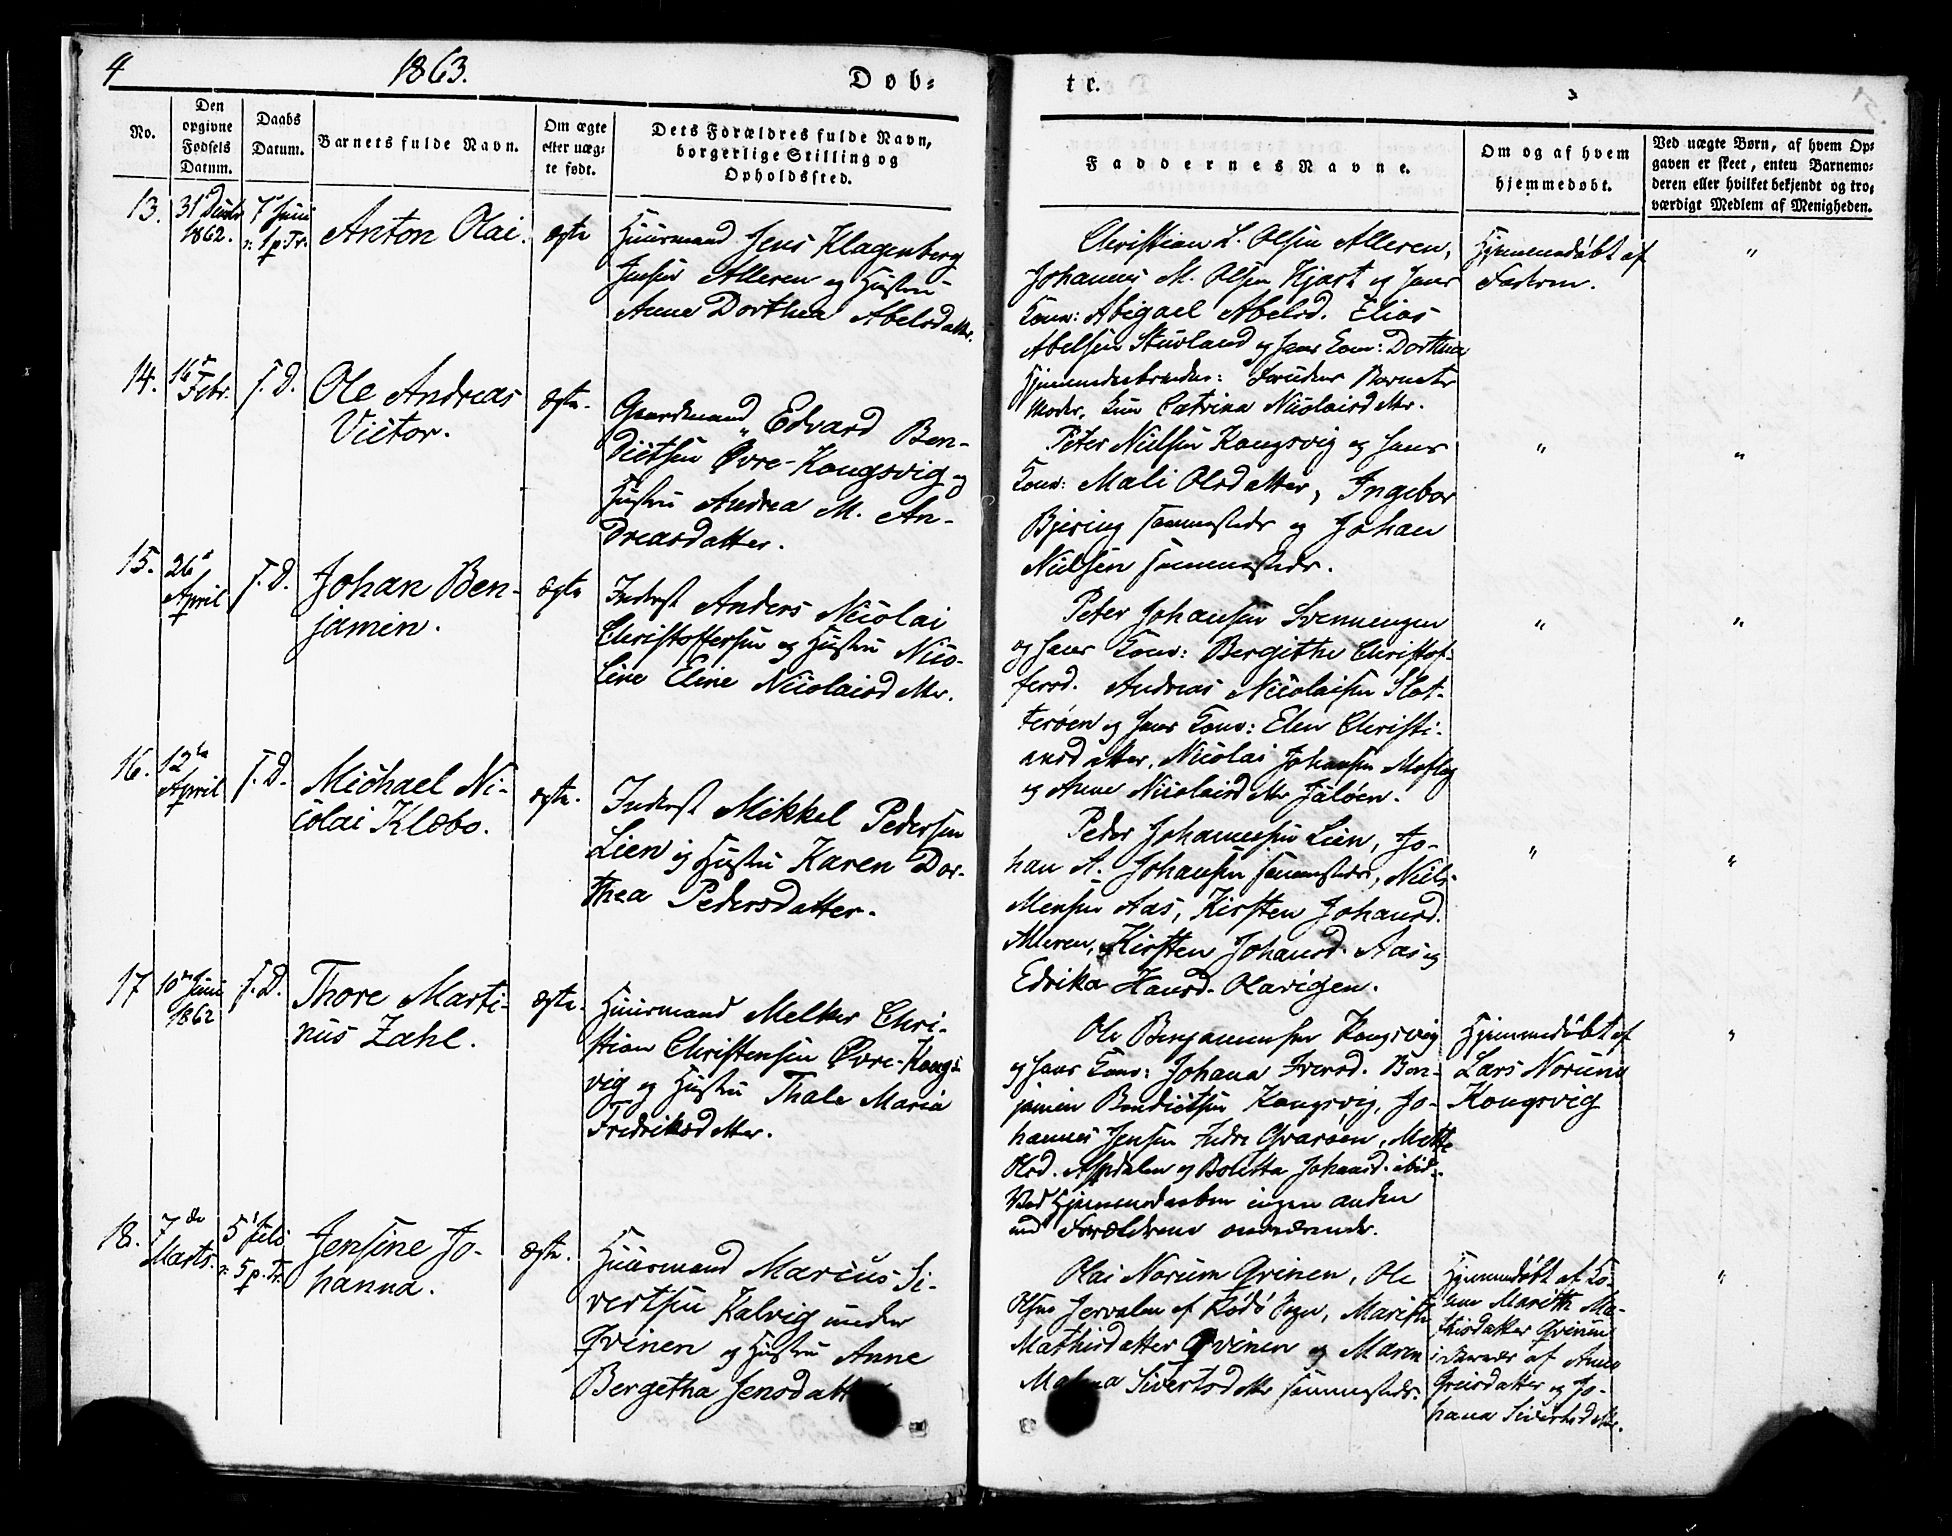 4
1863.
Døb=
te.
No.
Den
opgivne
Fødsels
Datum.
Daabs
Datum.
Barnets fulde Navn.
Om ægte
eller uæg-
te født.
Dets Forældres fulde Navn,
borgerlige Stilling og
Opholdssted.
Faddernes Navne.
Om og af hvem
hjemmedøbt.
Ved uægte Børn, af hvem Op=
gaven er skeet, enten Barnemo=
deren eller hvilket bekjendt og tro=
værdigt Medlem af Menigheden.
13.
31 Decbr
1862.
7 Juni
1 p. Tr.
Anton Olai.
ægte
Huusmand Jens Klagenberg
Jensen Alleren og Hustru
Anna Dorthea Abelsdatter.
Christian L. Olsen Alleren,
Johannes M. Olsen Hjart og hans
Kone: Abigael Abelsd. Elias
Abelsen Stuvland og hans Kone: Dorthea
Hjemmedaabsvidner: foruden Barnets
Moder, Kun Catrina Nicolaisdatter.
Hjemmedøbt af
Faderen.
"
14.
16de
Febr.
s. D.
Ole Andreas
Victor.
ægte.
Gaardmand Edvard Ben-
dictsen Øvre-Kongsvig og
Hustru Andrea M. An-
dreasdatter.
Peter Nielsen Kongsvig og hans
Kone: Mali Olsdatter, Ingebor
Bjering sammesteds og Johan
Nielsen sammesteds.
"
"
15.
26de
April
s. D.
Johan Ben-
jamin.
ægte
Inderst Anders Nicolai
Christoffersen og Hustru Nico-
line Eline Nicolaisdatter.
Peter Johansen Svenningen
og hans Kone: Bergithe Christof-
fersd. Andreas Nicolaisen Slot-
terøen og hans Kone: Elen Christi-
ansdatter, Nicolai Johansen Mofleg
og Anne Nicolaisdatter Jaløen.
"
"
16.
12te
April
s. D.
Michael Ni-
colai Klæbo.
ægte.
Inderst Mikkel Pedersen
Lien og Hustru Karen Dor-
thea Pedersdatter.
Peder Johannesen Lien, Jo-
han A. Johansen sammesteds, Niels
Monsen Aas, Kirsten Johansd.
Alleren, Kirsten Johansd. Aas og
Edrika Hansd. Olavigen.
"
"
17
10de Juni
1862
s. D.
Thore Marti-
nus Zahl.
ægte.
Huusmand Melker Chri-
stian Christensen Øvre-Kongs-
vig og Hustru Thale Maria
Fredriksdatter.
Ole Benjaminsen Kongsvig
og hans Kone: Johana Iversd. Ben-
jamin Bendictsen Kongsvig, Jo-
hannes Jensen Indre Qvarøen, Mette
Olsd. Aspdalen og Boletta Johansd. ibid.
Ved Hjemmedaaben ingen anden
end Forældrene nærværende.
Hjemmedøbt af
Lars Norum
Kongsvig
"
18.
7de
Marts.
5 Juli
5 p. Tr.
Jensine Jo-
hanna.
ægte.
Huusmand Marcus Si-
vertsen Kalvig under
Qvinen og Hustru Anne
Bergetha Jensdatter
Olai Norum Qvinen, Ole
Olsen Jervalen af Rødø Sogn, Marith
Mathisdatter Qvinen og Maren
Sivertsdatter sammesteds.
Hjemmedøbt af Ko-
nen Marith Ma-
thisdatter Qvinen
i Nærvær af Anne
Greisdatter og Jo-
hana Sivertsdatter.
"